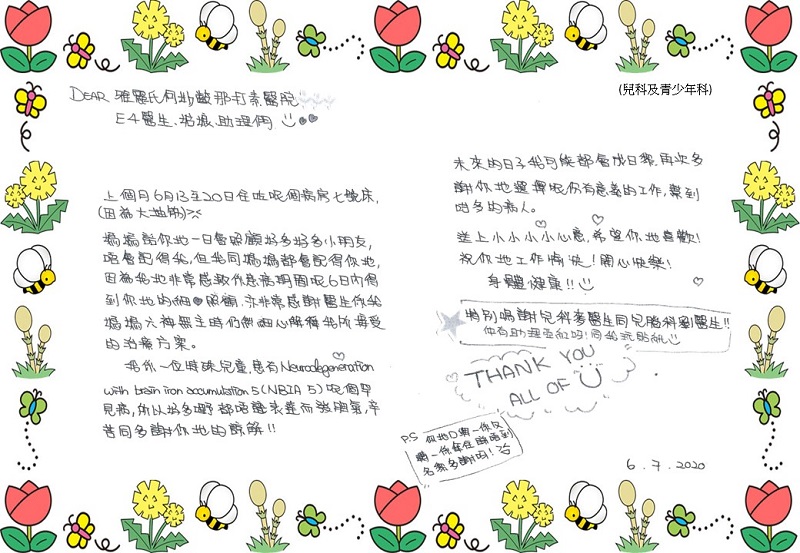 (兒科及青少年科)
DEAR 雅麗氏何妙齡那打素醫院
E4醫生、姑娘、助理們
上個月6月13至20日住咗呢個病房七號床,
媽媽話你地一日會照顧好多好多小朋友,
唔會記得我,但我同媽媽都會記得你地,
因為我地非常感激你
呢6日內得
到你地的細心照顧,亦非常感謝醫生係我
媽媽六神無主時們細心解釋我所要受
的治療方案。
我係一位特殊兒童,患有Neurodegeneration
with brain iron accumulation 5 (NBIA 5) 呢個罕
見病,所以好多嘢都唔識表達而發脾氣,辛
苦同多謝你地的諒解!!
未來的日子我可能都會成日黎,再次多
謝你地選擇呢份有意義的工作,幫到
咁多的病人。
送上小小小小心意,希望你地喜歡!
祝你地工作愉快!開心快樂!
身體健康!!
特別鳴謝兒科麥醫生同兒腦科劉醫生!!
仲有助理
同我玩貼紙
THANK YOU
ALL OF U
P.S
名
多謝晒!
6.7.2020